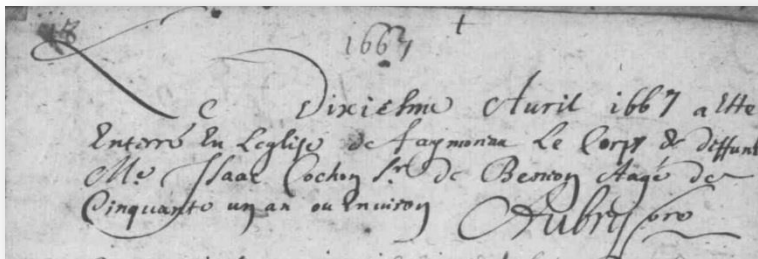 1667
Le Dixiehme Auril 1667 a Ette
Enterré En Leglise de faymoreau Le Corps de deffunt
Me Isaac Cochon Sr de Bernon Aagé de
Cinquante un an ou Environ
Aubry